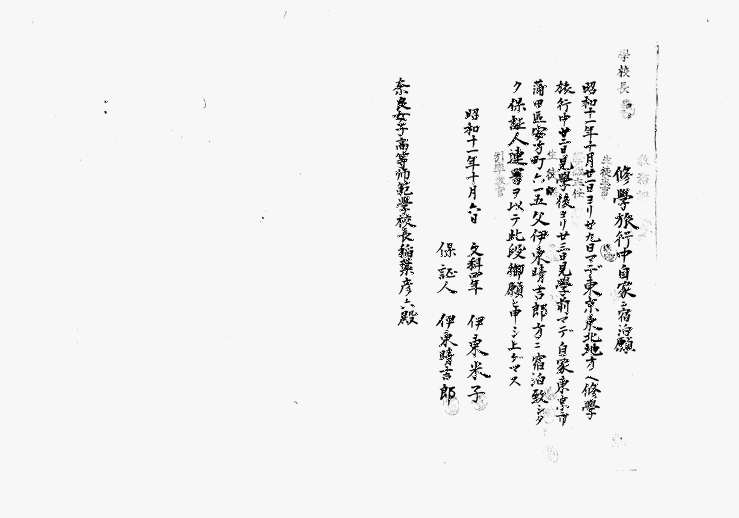 學校長
修學旅行中自家ニ宿泊願
昭和十一年十月廿一日ヨリ廿九日マデ東京東北地方ヘ修學
旅行中廿二日見學後ヨリ廿三日見學前マデ自家東京市
蒲田區安方町六一五父伊東晴吉郎方ニ宿泊致シタ
ク保証人連署ヲ以テ此段御願ヒ申シ上ゲマス
昭和十一年十月六日
文科四年 伊東米子
保証人 伊東晴吉郎
奈良女子高等師範學校長稲葉彦六殿